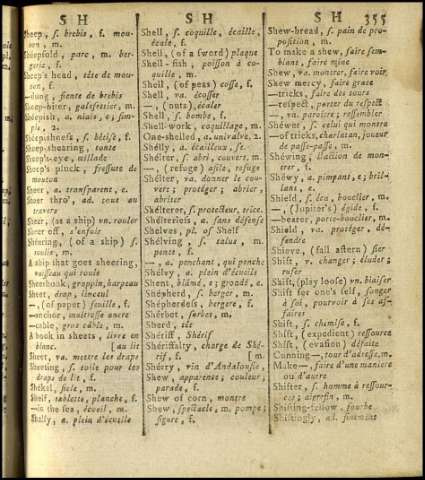 S H
S H
S H 355
Sheep, s. brebis, f. mouton, m.
Sheepfold, parc, m. bergerie, f.
Sheep's head, tête de mouton, f.
—dung, fiente de brebis
Sheep-biter, galefretier, m.
Shéepish, a. niais, e; simple, 2.
Shéepishness, s. bêtise, f.
Sheep-shearing, tonte
Sheep's-eye, œillade
Sheep's pluck, fressure de mouton
Sheer, a. transparent, e.
Sheer thro', ad. tout au travers
Sheer, (as a ship) vn. rouler
Sheer off, s'enfuir
Shéering, (of a ship) s. roulis, m.
A ship that goes sheering, vaisseau qui roule
Sheerhook, grappin, harpeau
Sheet, drap, linceul
—, (of paper) feuille, f.
—anchor, maîtresse ancre
—cable, gros cable, m.
A book in sheets, livre en blanc. [au lit
Sheet, va. mettre les draps
Sheeting, s. toile pour les draps de lit, f.
Shékel, sicle, m.
Shelf, tablette, planche, f.
—in the sea, écueil, m.
Shelfy, a. plein d'écueils
Shell, s. coquille, écaille, écale, f.
Shell, (of a sword) plaque
Shell-fish, poisson à coquille, m.
Shell, (of peas) cosse, f.
Shell, va. écosser
—, (nuts), écaler
Shell, s. bombe, f.
Shell-work, coquillage, m.
One-shelled, a. univalve, 2.
Shélly, a. écailleux, se.
Shélter, s. abri, couvert, m.
— (refuge) asile, refuge
Shélter, va. donner le couvert; protéger; abrier, abriter
Shélterer, s. protecteur, trice.
Shélterless, a. sans défense
Shelves, pl. of Shelf
Shélving, s. talus, m. pente, f.
—, a. penchant, qui penche
Shelvy, a. plein d'écueils
Shent, blâmé, e; grondé, e.
Shépherd, s. berger, m.
Shépherdess, bergere, f.
Shérbet, sorbet, m.
Sherd, têt
Shériff, Shérif
Shériffalty, charge de Shérif, f. [m.
Shérry, vin d'Andalousie,
Shew, apparence; couleur, parade, f.
Shew of corn, montre
Shew, spectacle, m. pompe; figure, f.
Shew-bread, s. pain de proposition, m.
To make a shew, faire semblant, faire mine
Shew, va. montrer, faire voir.
Shew mercy, faire grace
—tricks, faire des tours
—respect, porter du respect
—, va. paroître; ressembler
Shéwer, s. celui qui montre
—of tricks, charlatan, joueur de passe-passe, m.
Shéwing, l'action de montrer, f.
Shéwy, a. pimpant, e; brillant, e.
Shield, s. écu, bouclier, m.
—, (Jupiter's) égide, f.
—bearer, porte-bouclier, m.
Shield, va. protéger, défendre
Shieve, (fall astern) sier
Shift, v. changer; éluder; ruser
Shift, (play loose) vn. biaiser
Shift for one's self, songer à soi, pourvoir à ses affaires
Shift, s. chemise, f.
Shift, (expedient) ressource
Shift, (evasion) défaite
Cunning—, tour d'adresse, m.
Make—, faire d'une maniere ou d'autre
Shifter, s. homme à ressources; aigrefin, m.
Shifting-fellow, fourbe
Shiftingly, ad. finement